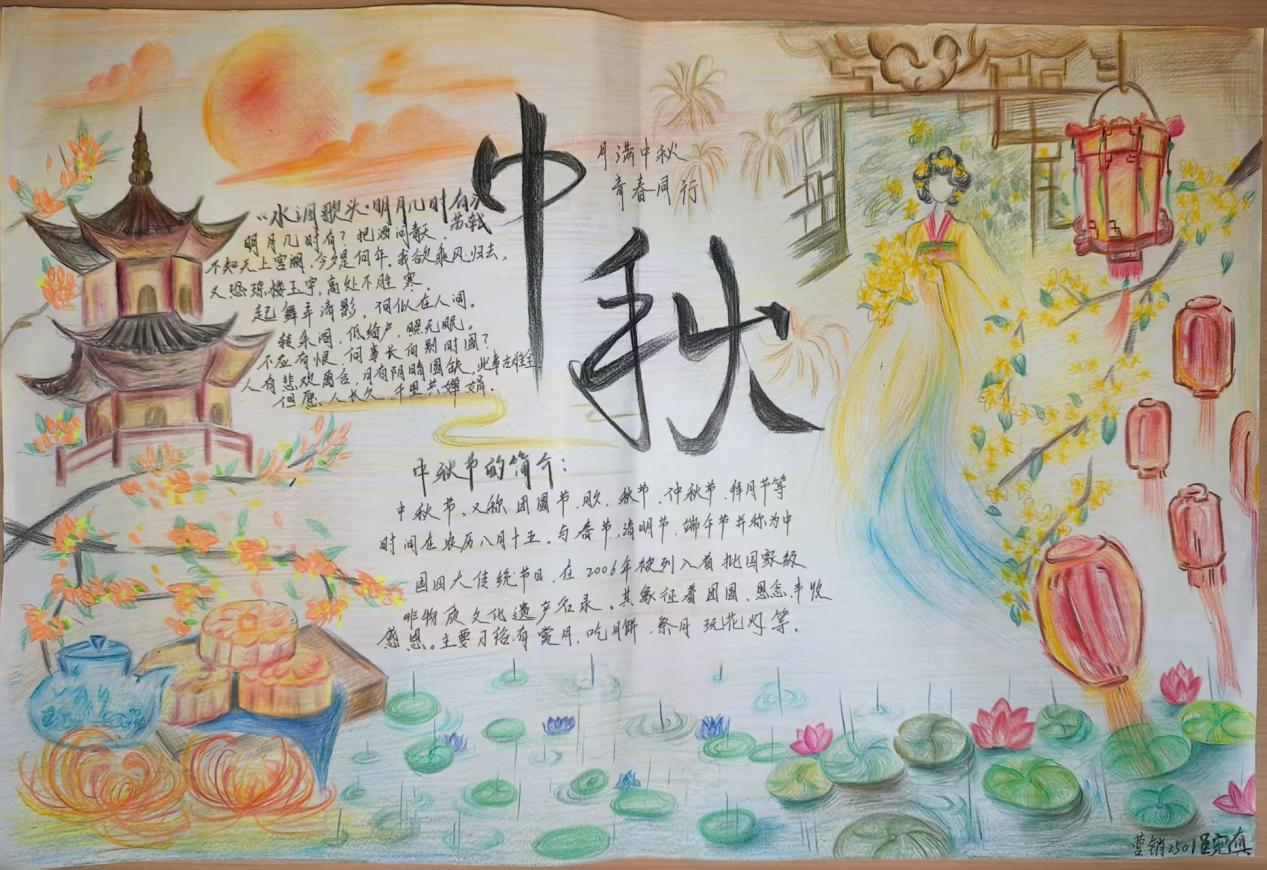 中秋
月满中秋
青春同行
《水调歌头·明月几时有》
苏轼
明月几时有?把酒问青天,
不知天上宫阙,今夕是何年,我欲乘风归去,
又恐琼楼玉宇,高处不胜寒,
起舞弄清影,何似在人间。
转朱阁,低绮户,照无眠。
不应有恨,何事长向别时圆?
人有悲欢离合,月有阴晴圆缺,此事古难全
但愿人长久,千里共婵娟。
中秋节的简介:
中秋节,又称团圆节、秋节、仲秋节、拜月节等
时间在农历八月十五。与春节、清明节、端午节并称为中
国四大传统节日,在2006年被列入首批国家级
非物质文化遗产名录。其象征着团圆、思念、丰收
感恩。主要习俗有赏月、吃月饼、祭月、玩花灯等。
营销2501